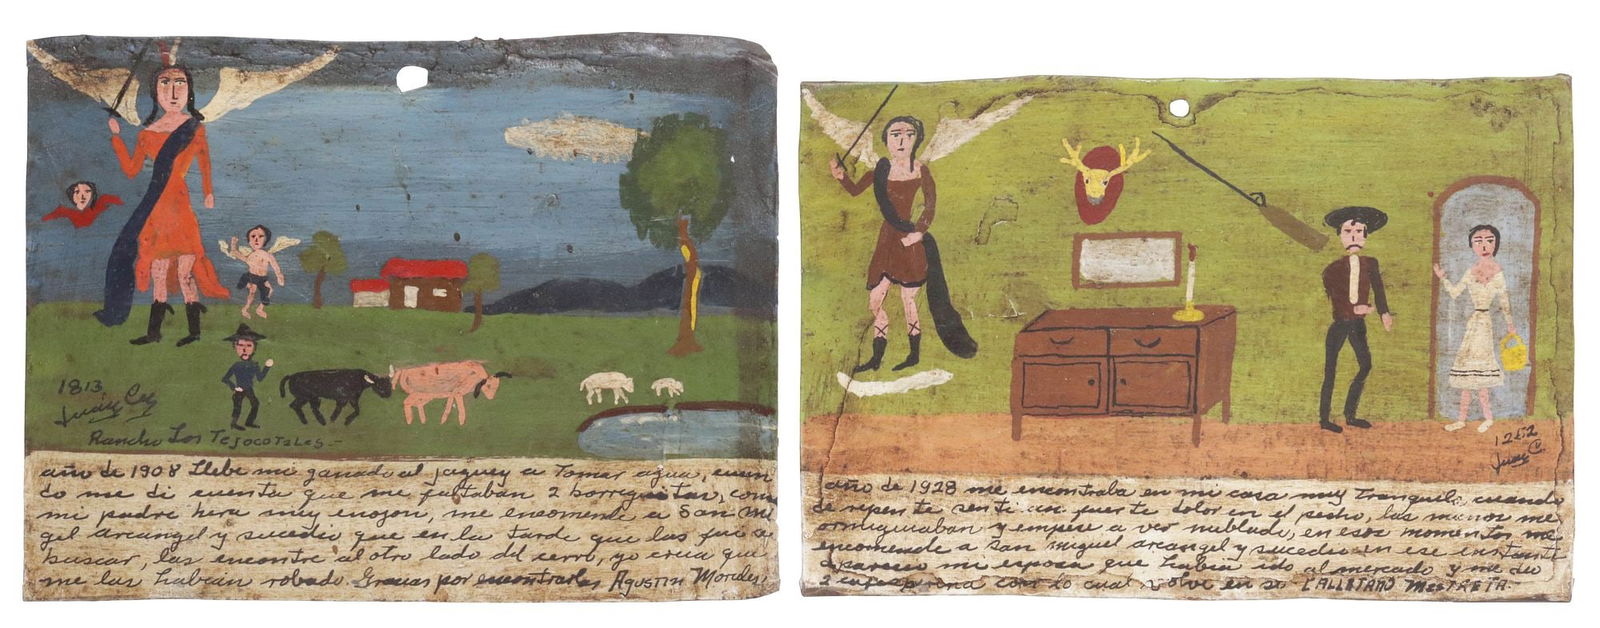 1813
Juan Cy
Rancho Los Tejocotales-
año de 1908 llebe mi ganado al jaguey a Tomar agua, cuan
do me di cuenta que me faltaban 2 borreguitas, como
mi padre hera muy enojon, me encomende a San Mi
gel Arcangel y sucedio que en la tarde que las fui a
buscar, las encontre al otro lado del cerro, yo creia que
me las habian robado. Gracias por encontrarlas Agustin Morales
1252
Juan C
año de 1928 me encontraba en mi casa muy tranquilo, cuando
de repente senti un fuerte dolor en el pecho, las manos me
ormiguiaban y empese a ver nublado, en esos momentos me
encomende a san miguel arcangel y sucedio en ese instante
aparecio mi esposa que habia ido al mercado y me dio
2 con lo cual volve en si CALLETANO MESTRETA